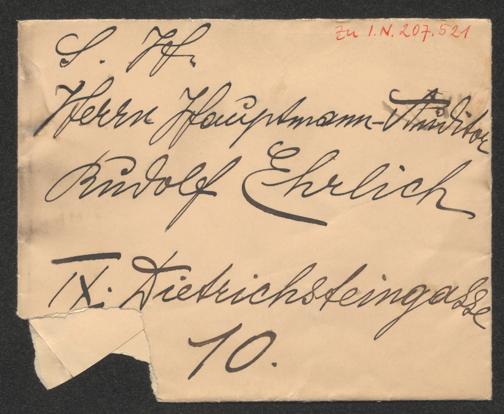 Zu I.N. 207.521
S. H.
Herrn Hauptmann-Auditor
Rudolf Ehrlich
IX. Dietrichsteingasse
10.